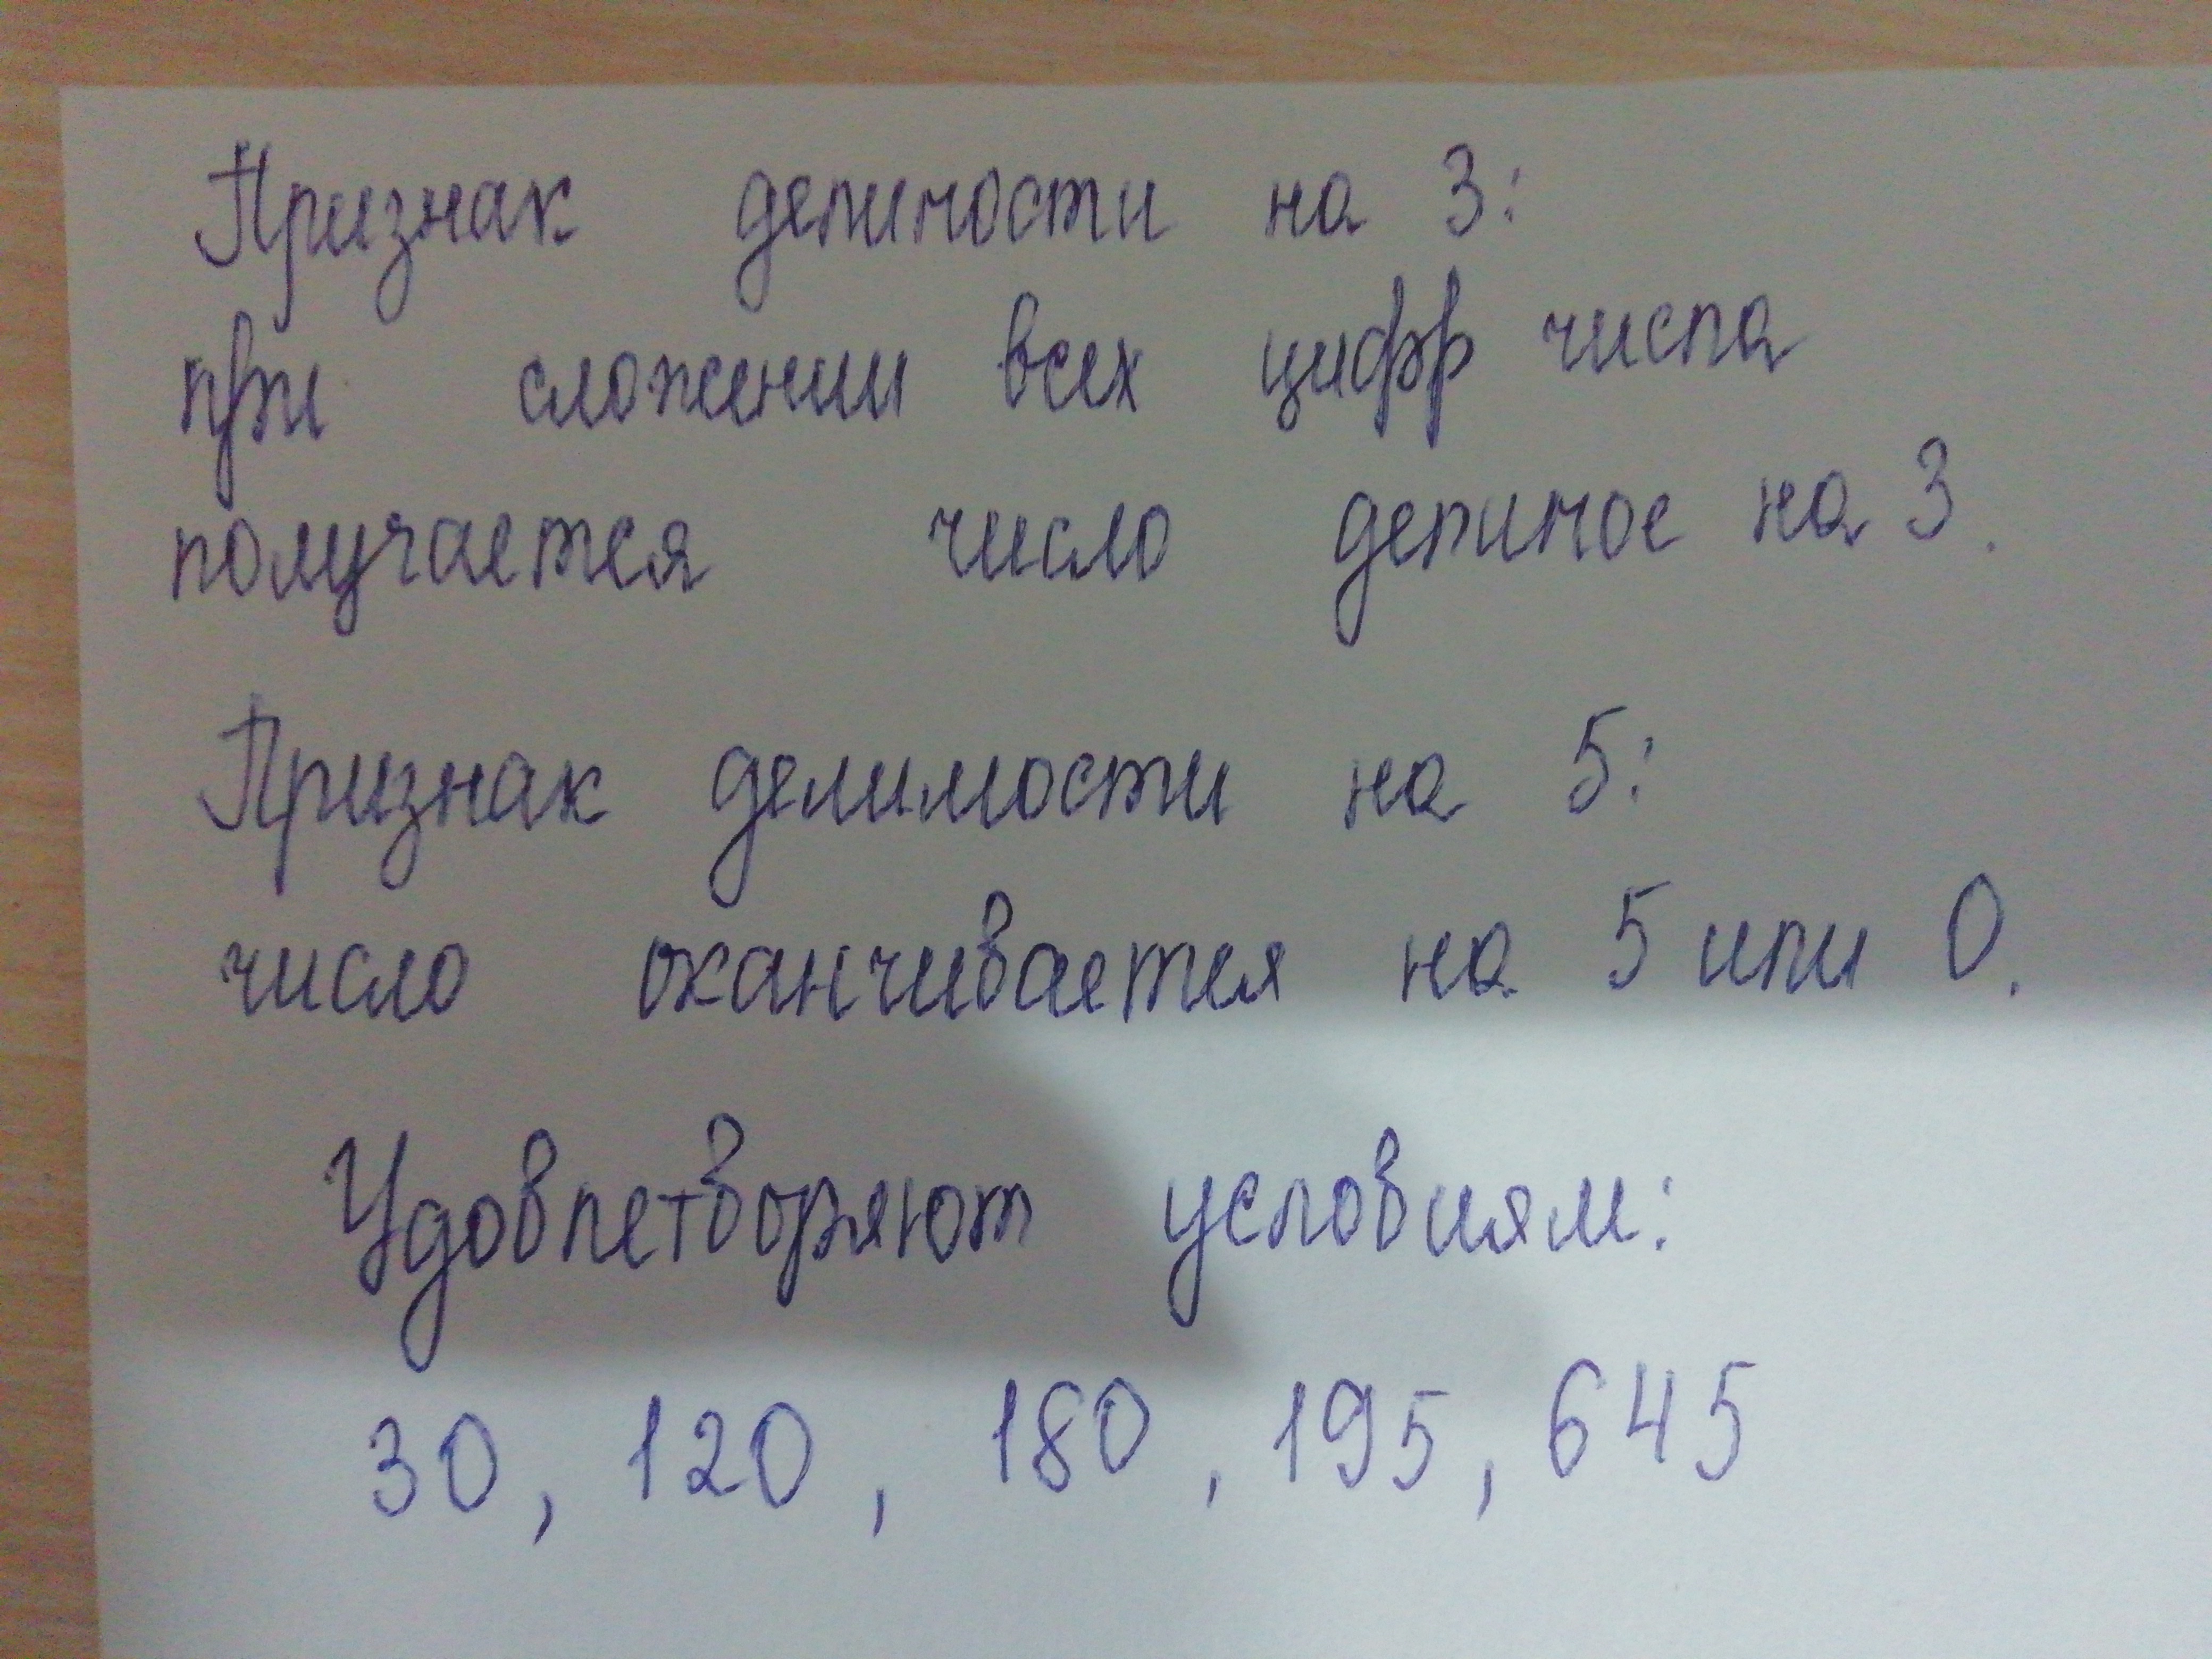 Признак делимости на 3:
при сложении всех цифр числа
получается число делимое на 3.
Признак делимости на 5:
число оканчивается на 5 или 0.
Удовлетворяют условиям:
30, 120, 180, 195, 645